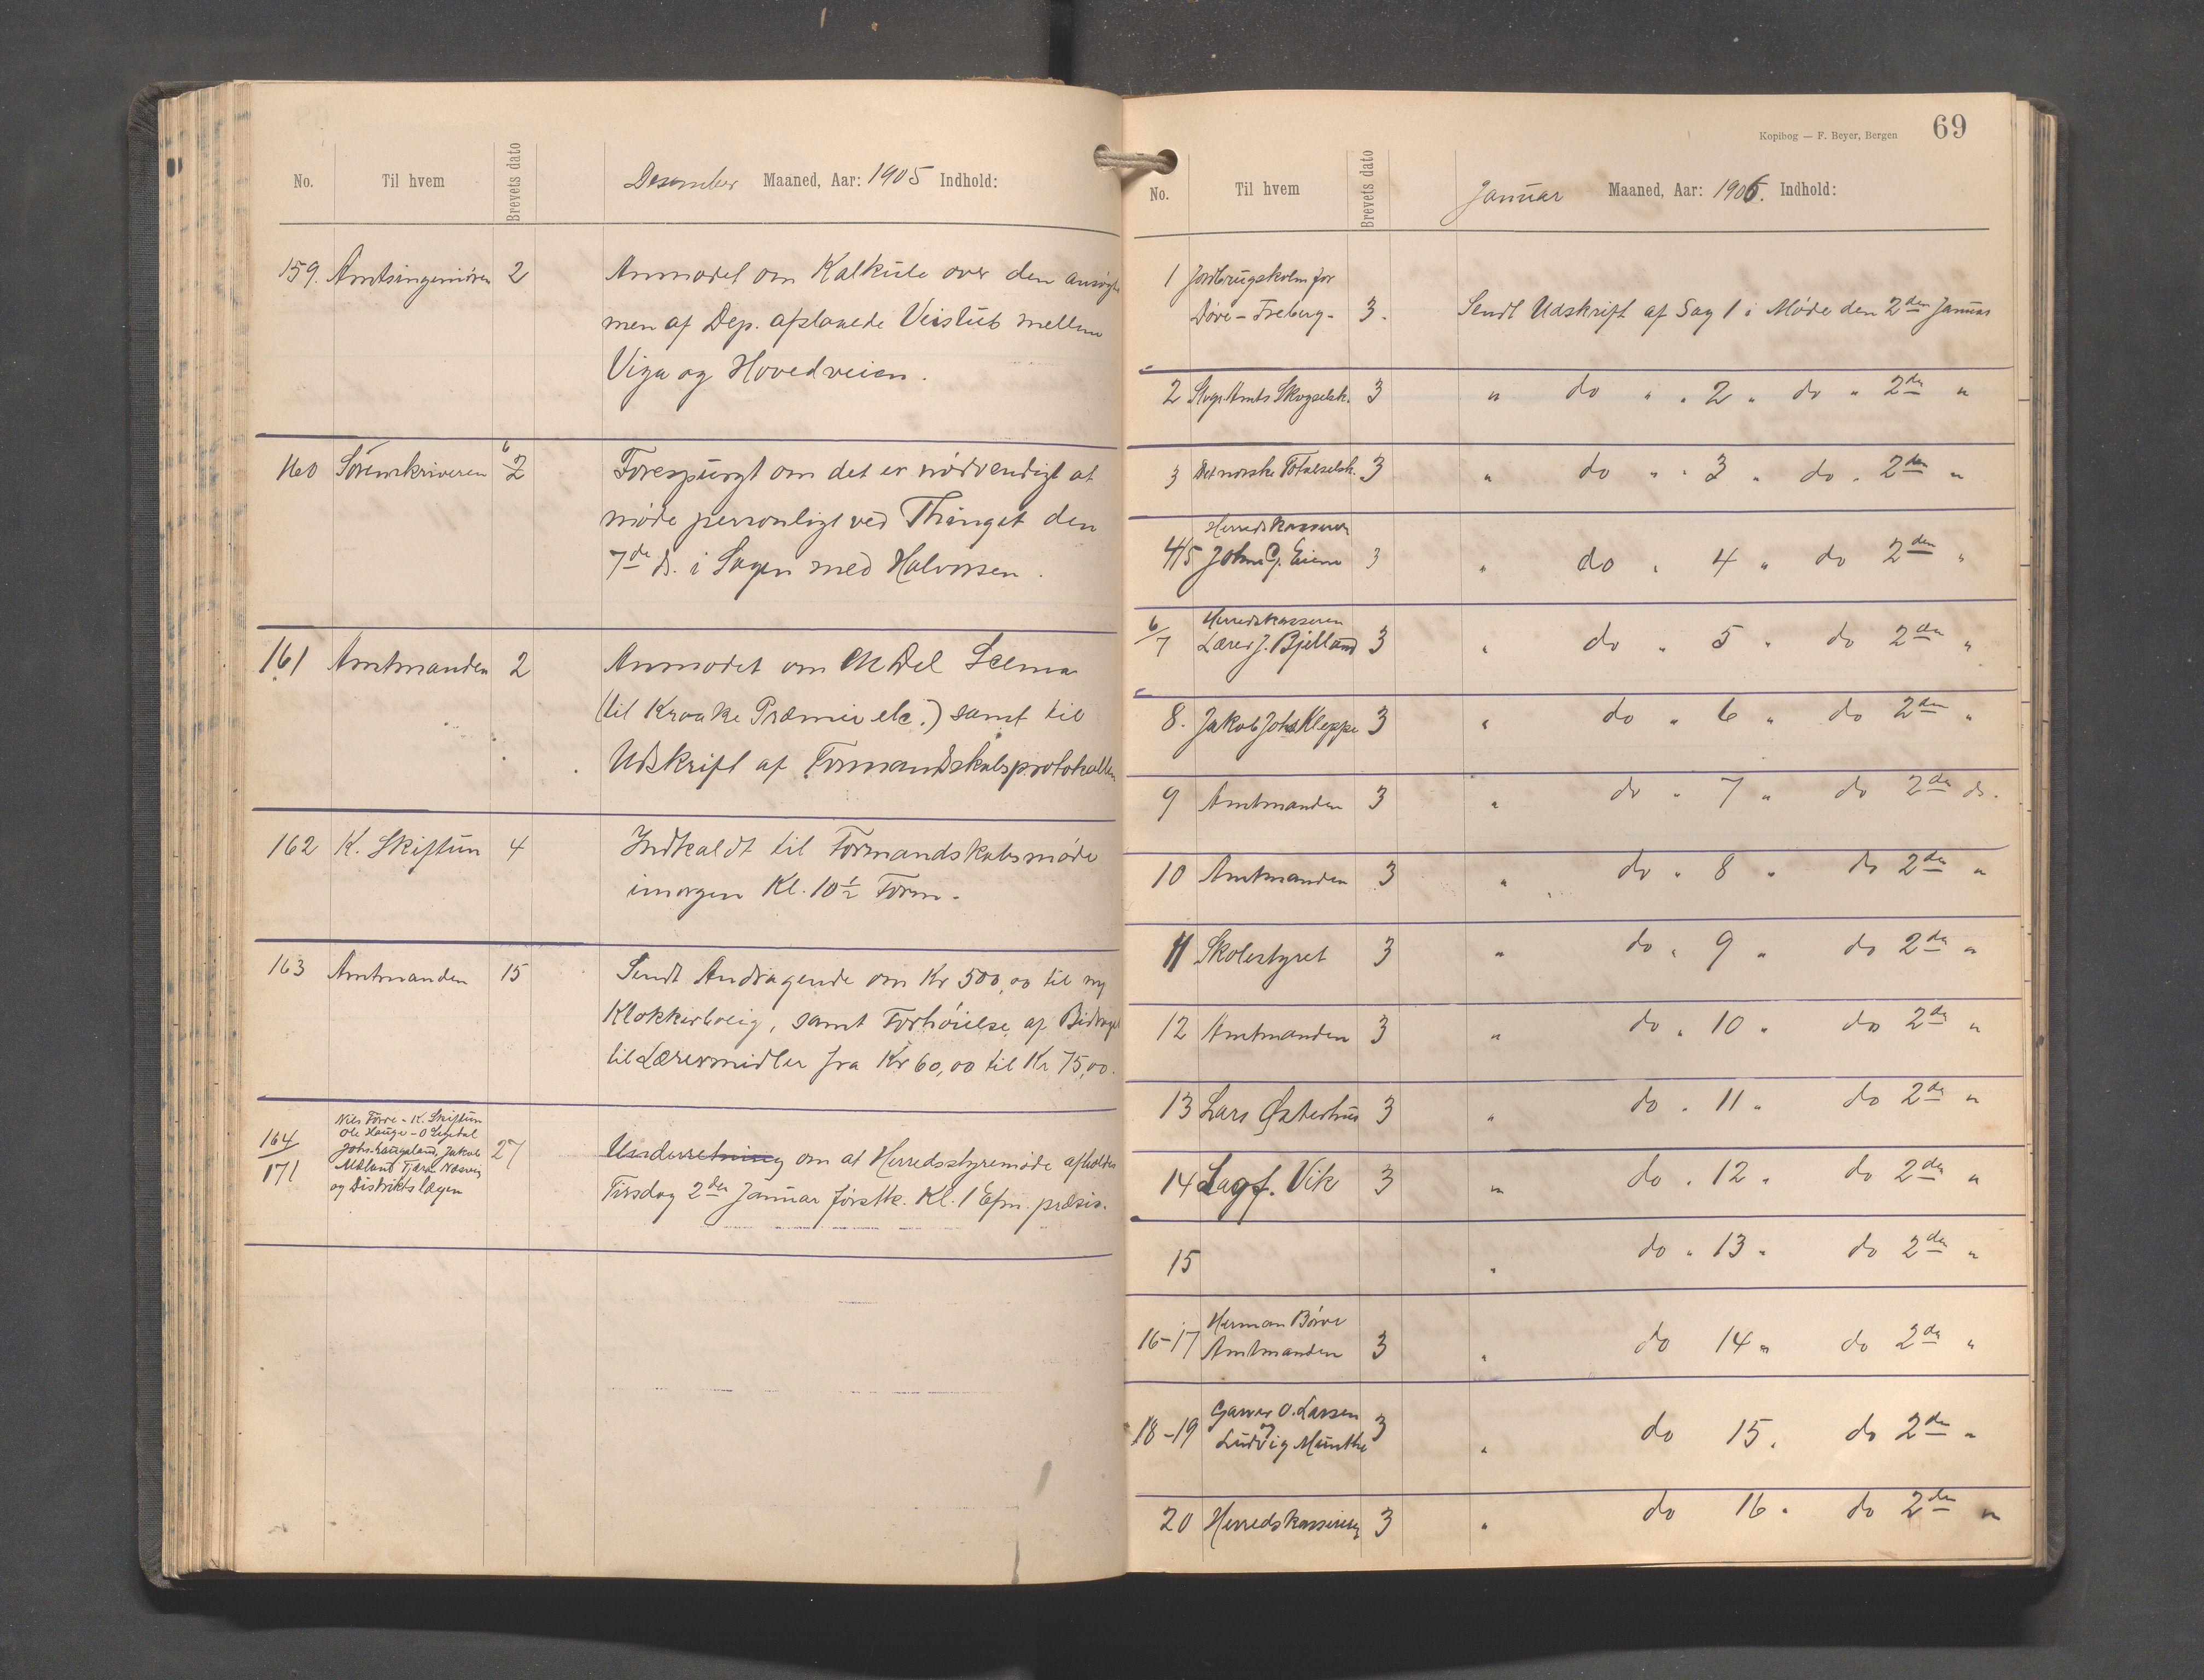 No. Til hvem Brevets dato Desember Maaned, Aar: 1905 Indhold:
159. Amtsingeniøren 2 Anmodet om Kalkule over den ansøgte
men af Dep. afslaaede Veistub mellem
Viga og Hovedveien.
160 Sorenskriveren 6/2 Forespurgt om det er nødvendigt at
møde personligt ved Thinget den
7de ds. i Sagen med Halvorsen.
161 Amtmanden 2 Anmodet om en Del Scema
(til Kraake Præmie etc.) samt til
Udskrift af Formandskabsprotokollen
162 K. Skiftun 4 Indkaldt til Formandskabsmøde
imorgen Kl. 10½ Form.
163 Amtmanden 15 Sendt Andragende om Kr 500,00 til ny
Klokkerbolig, samt Forhøielse af Bidraget
til Læremidler fra Kr 60,00 til Kr 75,00.
164/171 Niels Førre - K. Skiftun
Ole Hauge - O
Johs. Haugeland, Jakob
Mæland Tjæra Næsvig
og Distriktslægen
27 Underretning om at Herredsstyremøde afholdes
Tirsdag 2den Januar førstk. Kl. 1 Efm. præsis.
Kopibog — F. Beyer, Bergen 69
No. Til hvem Brevets dato Januar Maaned, Aar: 1906. Indhold:
1 Jordbrugskolen for
Døve - Freberg - 3. Sendt Udskrift af Sag 1 i Møde den 2den Januar
2 Amts Skogselsk. 3 " do " " 2 " do " 2den "
3 Det norske Totalselsk. 3 " do " " 3 " do " 2den "
Herredskasseren
4/5 Johns G. Eiene 3 " do " 4 " do 2den "
Herredskasseren
6/7 Lærer J. Bjelland 3 " do " 5 " do 2den "
8. Jakob Johs Kleppe 3 " do " 6 " do 2den "
9 Amtmanden 3 " do " 7 " do 2den ds.
10 Amtmanden 3 " do " 8 " do 2den "
11 Skolestyret 3 " do " 9 " do 2den "
12 Amtmanden 3 " do " 10 " do 2den "
13 Lars Østerhus 3 " do " 11 " do 2den "
14 Lagf. Vik 3 " do " 12 " do 2den "
15 " do " 13 " do 2den "
Herman Børve
16-17 Amtmanden 3 " do 14 " do 2den "
Garver O. Larsen
og
18-19 Ludvig Munthe 3 " do 15 " do 2den "
20 Herredskassereren 3 " do 16 " do 2den "